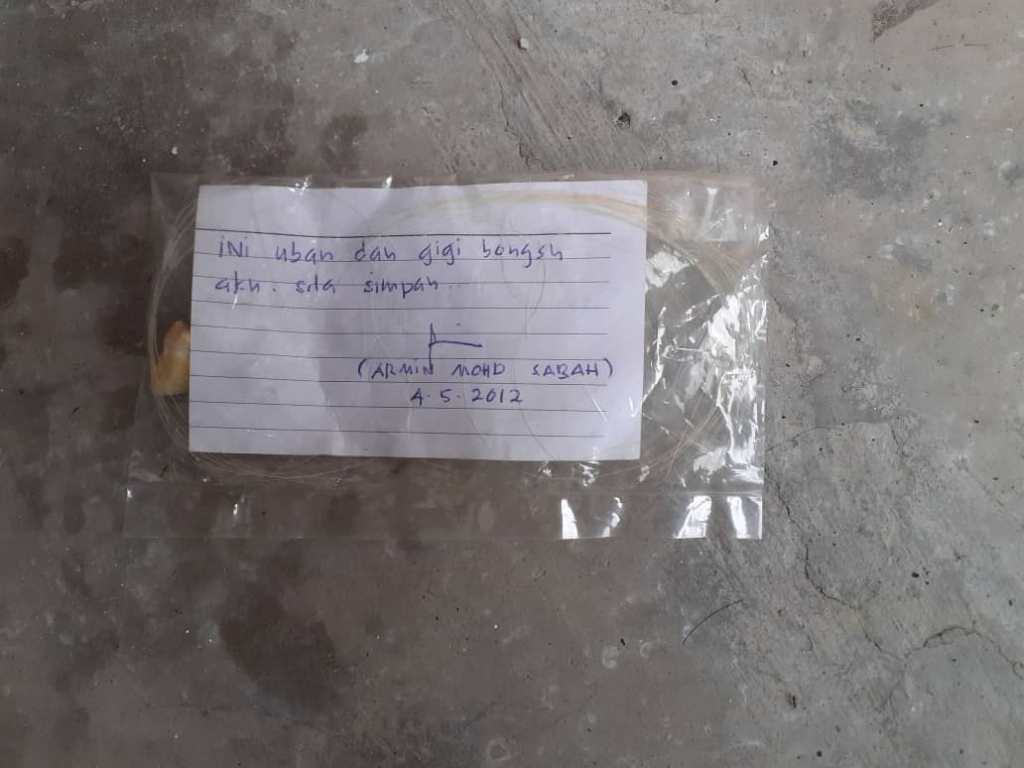 INi uban dan gigi bongsu
aku. sila simpan.
(ARMIN MOHD SABAH)
4.5.2012